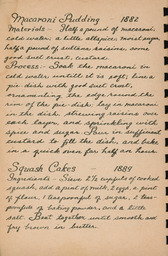 Macaroni Pudding 1882
Materials - Half a pound of macaroni
cold water, a little allspice, moist sugar
half a pound of sultana raisins, some
good suet crust, custard.
Process - Soak the macaroni in
cold water until it is soft; line a
pie dish with good suet crust,
ornamenting the edge around the
rim of the pie dish; lay in macaroni
in the dish, strewing raisins over
each layer, and sprinkling with
spice and sugar. Pour in sufficient
custard to fill the dish, and bake
in a quick oven for half an hour
Squash Cakes - 1889
Ingredients - Sieve 2 ½ cupfuls of cooked
squash, add a pint of milk, 2 eggs, a pint
of flour, 1 teaspoonful of sugar, 2 teas-
poonfuls of baking powder, and a little
salt. Beat together until smooth and
fry brown in butter.